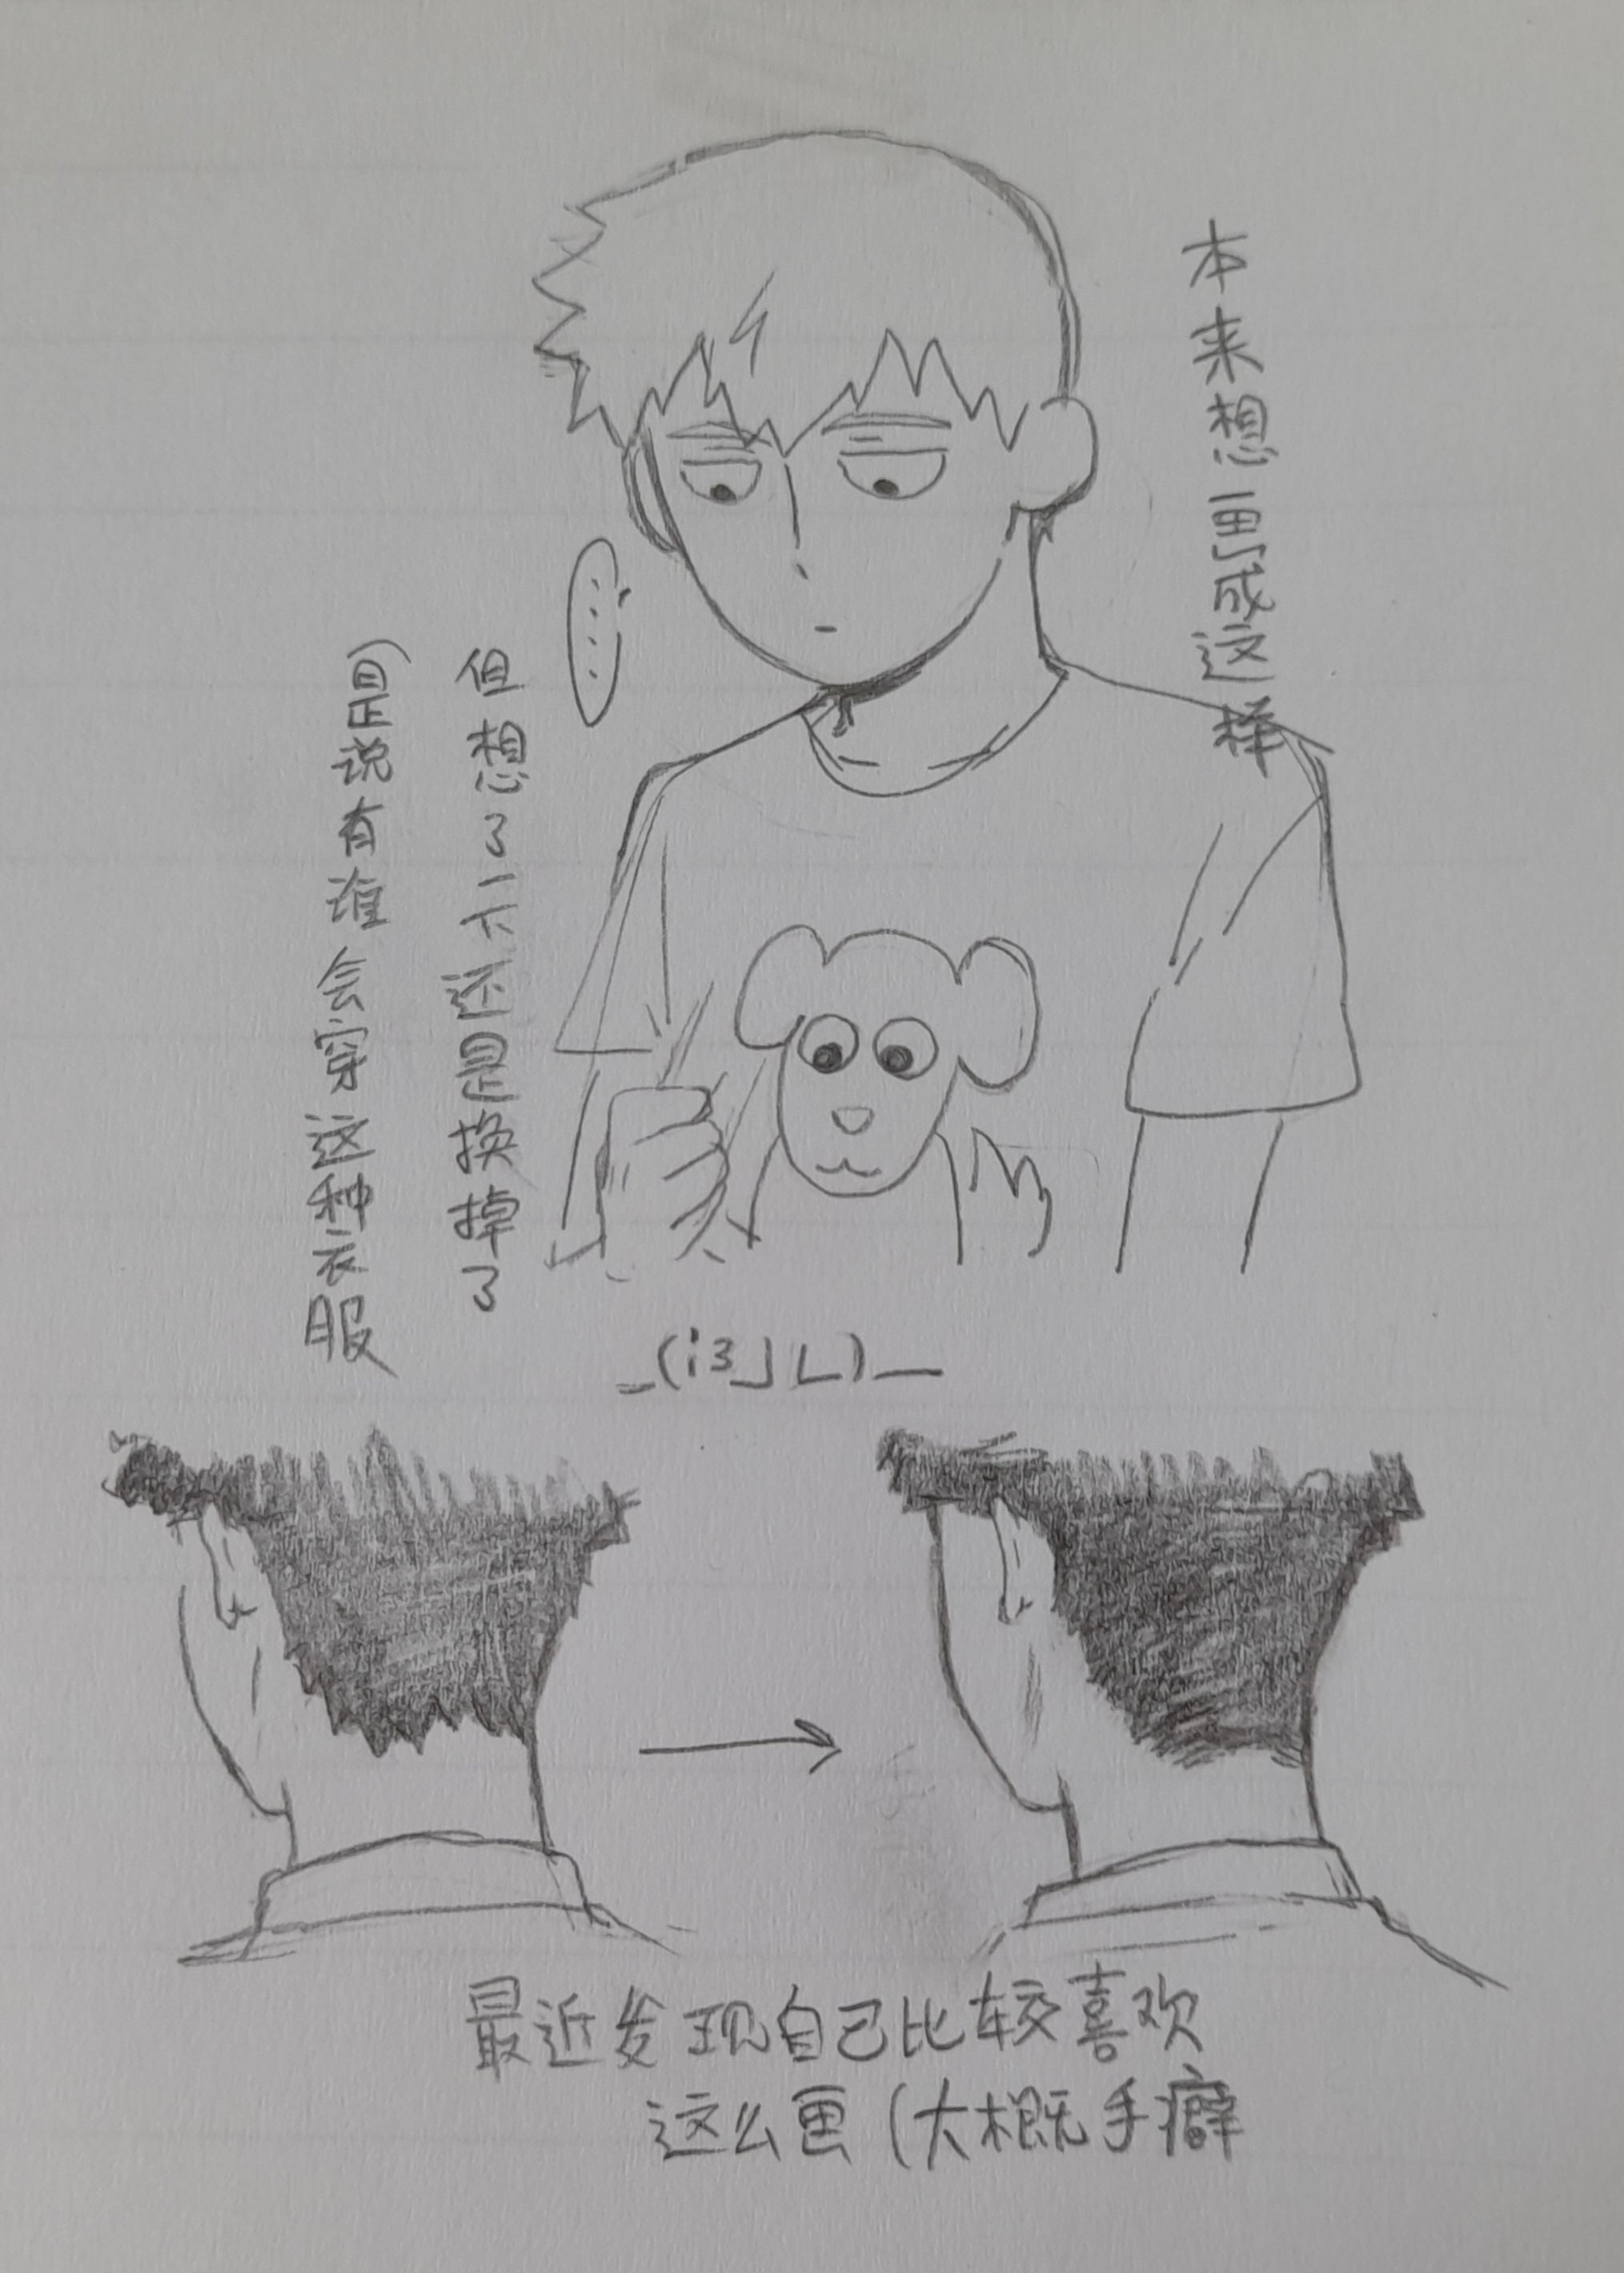 本来想画成这样
但想了一下还是换掉了
(是说有谁会穿这种衣服
.....
_(:3」∠)_
最近发现自己比较喜欢
这么画(大概手癖